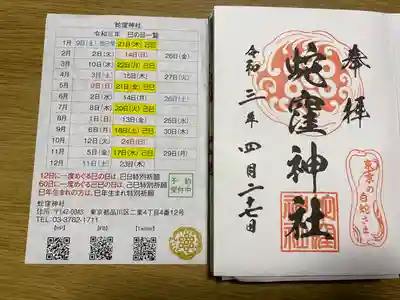 蛇窪神社
令和三年 巳の日一覧
1月 9日(土) 21日(木) 己巳
2月 2日(火) 14日(日) 26日(金)
3月 10日(水) 22日(月) 己巳
4月 3日(土) 15日(木) 27日(火)
5月 9日(日) 21日(金) 己巳
6月 2日(水) 14日(月) 26日(土)
7月 8日(木) 20日(火) 己巳
8月 1日(日) 13日(金)
9月 6日(月) 18日(土) 己巳
10月 12日(火) 24日(日)
11月 5日(金) 17日(水) 己巳 29日(月)
12月 11日(土) 23日(木)
12日に一度めぐる巳の日は、巳日特別祈願
60日に一度めぐる己巳の日は、己巳特別祈願
巳年生まれの方は、巳年生まれ特別祈願
予約
受付中
蛇窪神社
住所:〒142-0043 東京都品川区二葉4丁目4番12号
TEL:03-3782-1711
【HP】 【FB】 【Twitter】
奉拝
蛇窪神社
令和三年 四月二十七日
東京の白蛇さま